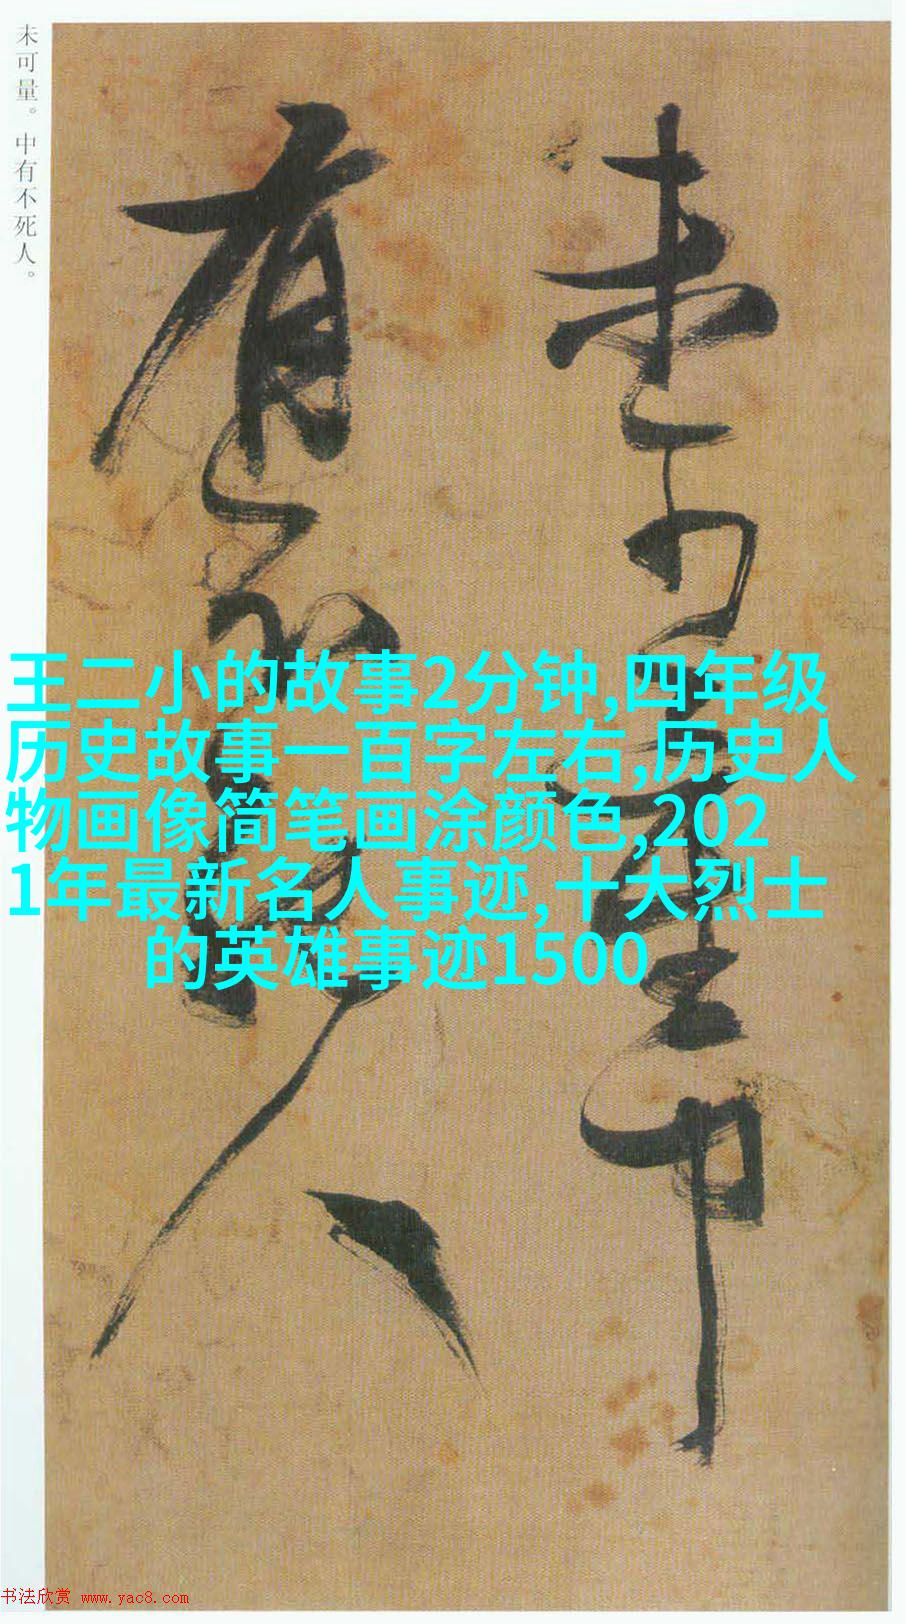 未可量。中有不死人。
未可量中
有不死人
王二小的故事2分钟,四年级
历史故事一百字左右,历史人
物画像简笔画涂颜色,202
1年最新名人事迹,十大烈士
的英雄事迹1500
书法欣赏 www.yac8.com